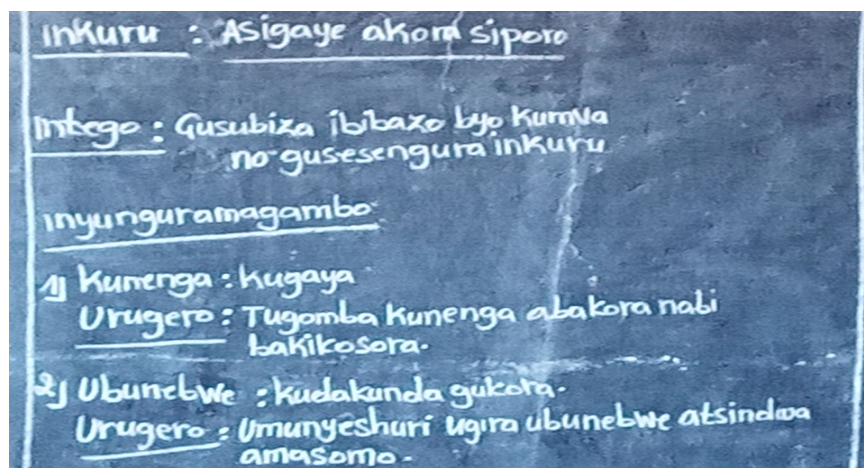 Inkuru : Asigaye akora siporo
Intego : Gusubiza ibibazo byo kumva
no gusesengura inkuru
inyunguramagambo
1) Kunenga : kugaya
Urugero : Tugomba kunenga abakora nabi
bakikosora.
2) Ubunebwe : kudakunda gukora.
Urugero : Umunyeshuri ugira ubunebwe atsindwa
amasomo.